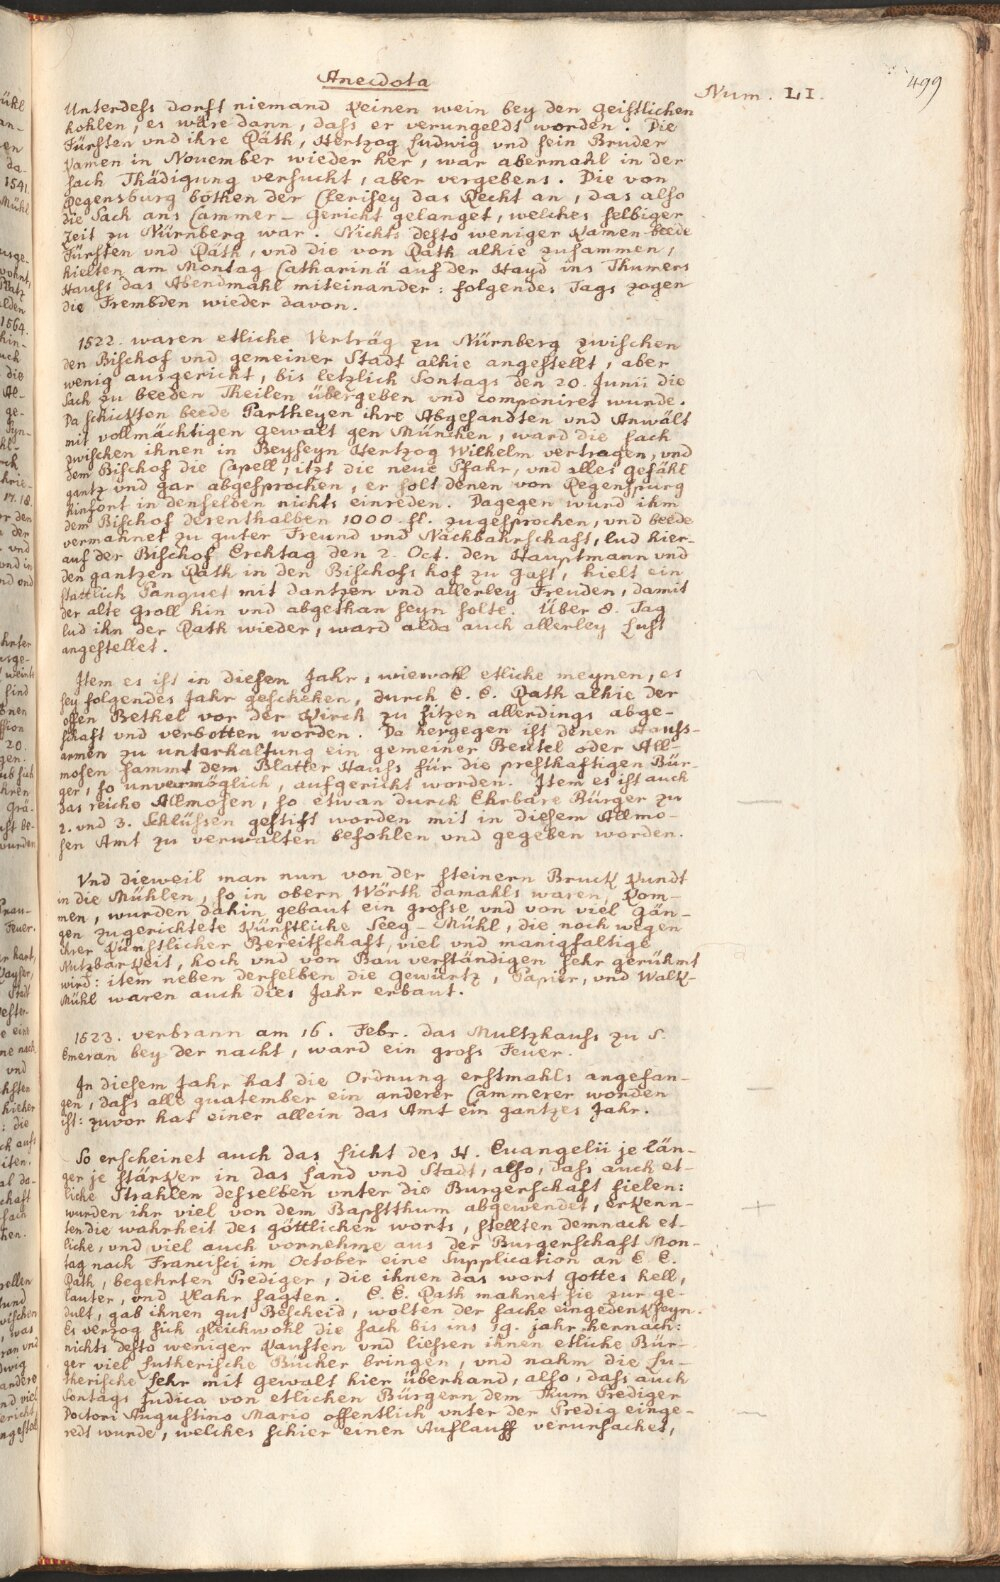 Anecdota
Num. LI.
499
Unterdess dorft niemand keinen wein bey den geistlichen
hohlen, es wäre dann, dass er verungeldt worden. Die
Fürsten vnd ihre Räth, Hertzog Ludwig vnd sein Bruder
kamen in November wieder her, war abermahl in der
sach Thädigung versucht, aber vergebens. Die von
Regensburg bothen der Clerisey das Recht an, das also
die Sach ans Cammer-Gericht gelanget, welches selbiger
Zeit zu Nürnberg war. Nichts desto weniger kamen beede
Fürsten vnd Räth, vnd die von Rath alhie zusammen,
hielten am Montag Catharinä auf der Hayd ins Thumers
Hauss das Abendmahl miteinander: folgendes Tags zogen
die Frembden wieder davon.
1522. waren etliche Verträg zu Nürnberg zwischen
den Bischof vnd gemeiner Stadt alhie angestellt, aber
wenig ausgericht, bis letzlich Sontags den 20. Junii die
Sach zu beeden Theilen übergeben vnd componiret wurde.
Da schickten beede Partheyen ihre Abgesandten vnd Anwält
mit vollmächtigen gewalt gen München, ward die sach
zwischen ihnen in Beyseyn Hertzog Wilhelm vertragen, vnd
dem Bischof die Capell, itzt die neue Pfahr, vnd alles gefähl
gantz vnd gar abgesprochen, er solt denen von Regenspurg
hinfort in denselben nichts einreden. Dagegen wurd ihm
dem Bischof derenthalben 1000. fl. zugesprochen, vnd beede
vermahnet zu guter Freund vnd Nachbahrschaft, lud hier-
auf der Bischof Erchtag den 2. Oct. den Hauptmann vnd
den gantzen Rath in den Bischofs hof zu gast, hielt ein
stattlich Panquet mit dantzen vnd allerley Freuden, damit
der alte groll hin vnd abgethan seyn solte. Über 8. Tag
lud ihn der Rath wieder, ward alda auch allerley Lust
angestellet.
Item es ist in diesen Jahr, wiewohl etliche meynen, es
sey folgendes Jahr geschehen, durch E. E. Rath alhie der
offen Bethel vor der Kirch zu sitzen allerdings abge-
schaft vnd verbotten worden. Da hergegen ist denen Hauss-
armen zu unterhaltung ein gemeiner Beutel oder All-
mosen sammt dem Blatter Hauss für die presthaftigen Bür-
ger, so unvermöglich, aufgericht worden. Item es ist auch
das reiche Allmosen, so etwan durch Ehrbare Bürger zu
2. vnd 3. Schlüssen gestift worden mit in diesem Allmo-
sen Amt zu verwalten befohlen vnd gegeben worden.
Vnd dieweil man nun von der steinern Bruck kundt
in die Mühlen, so in obern Wörth damahls waren, kom-
men, wurden dahin gebaut ein grosse vnd von viel gän-
gen zugerichtete künstliche Seeg-Mühl, die noch wegen
ihrer künstlicher Bereitschaft, viel vnd manigfaltige
Nutzbarkeit, hoch vnd von Bau verständigen sehr gerühmt
wird: item neben derselben die gewürtz, Papier, vnd Walk-
Mühl waren auch dies Jahr erbaut.
1523. verbrann am 16. Febr. das Multzhauss zu S.
Emeran bey der nacht, ward ein gross Feuer.
In diesem Jahr hat die Ordnung erstmahls angefan-
gen, dass alle quatember ein anderer Cammerer worden
ist: zuvor hat einer allein das Amt ein gantzes Jahr.
So erscheinet auch das Licht des H. Evangelii je län-
ger je stärker in das Land vnd Stadt, also, dass auch et-
liche Strahlen desselben vnter die Burgerschaft fielen:
wurden ihr viel von dem Bapstthum abgewendet, erkenn-
ten die wahrheit des göttlichen worts, stellten demnach et-
liche, vnd viel auch vornehme aus der Burgerschaft Mon-
tag nach Francisci im October eine Supplication an E. E.
Rath, begehrten Prediger, die ihnen das wort Gottes hell,
lauter, vnd klahr sagten. E. E. Rath mahnet sie zur ge-
dult, gab ihnen gut Bescheid, wolten der sache eingedenk seyn.
Es verzog sich gleichwohl die sach bis ins 19. jahr hernach:
nichts desto weniger kauften vnd liessen ihnen etliche Bür-
ger viel Lutherische Bücher bringen, vnd nahm die Lu-
therische Lehr mit gewalt hier überhand, also, dass auch
Sontags Judica von etlichen Bürgern dem Thum Prediger
Doctori Augustino Mario offentlich vnter der Predig einge-
redt wurde, welches schier einen Auflauff verursachet,